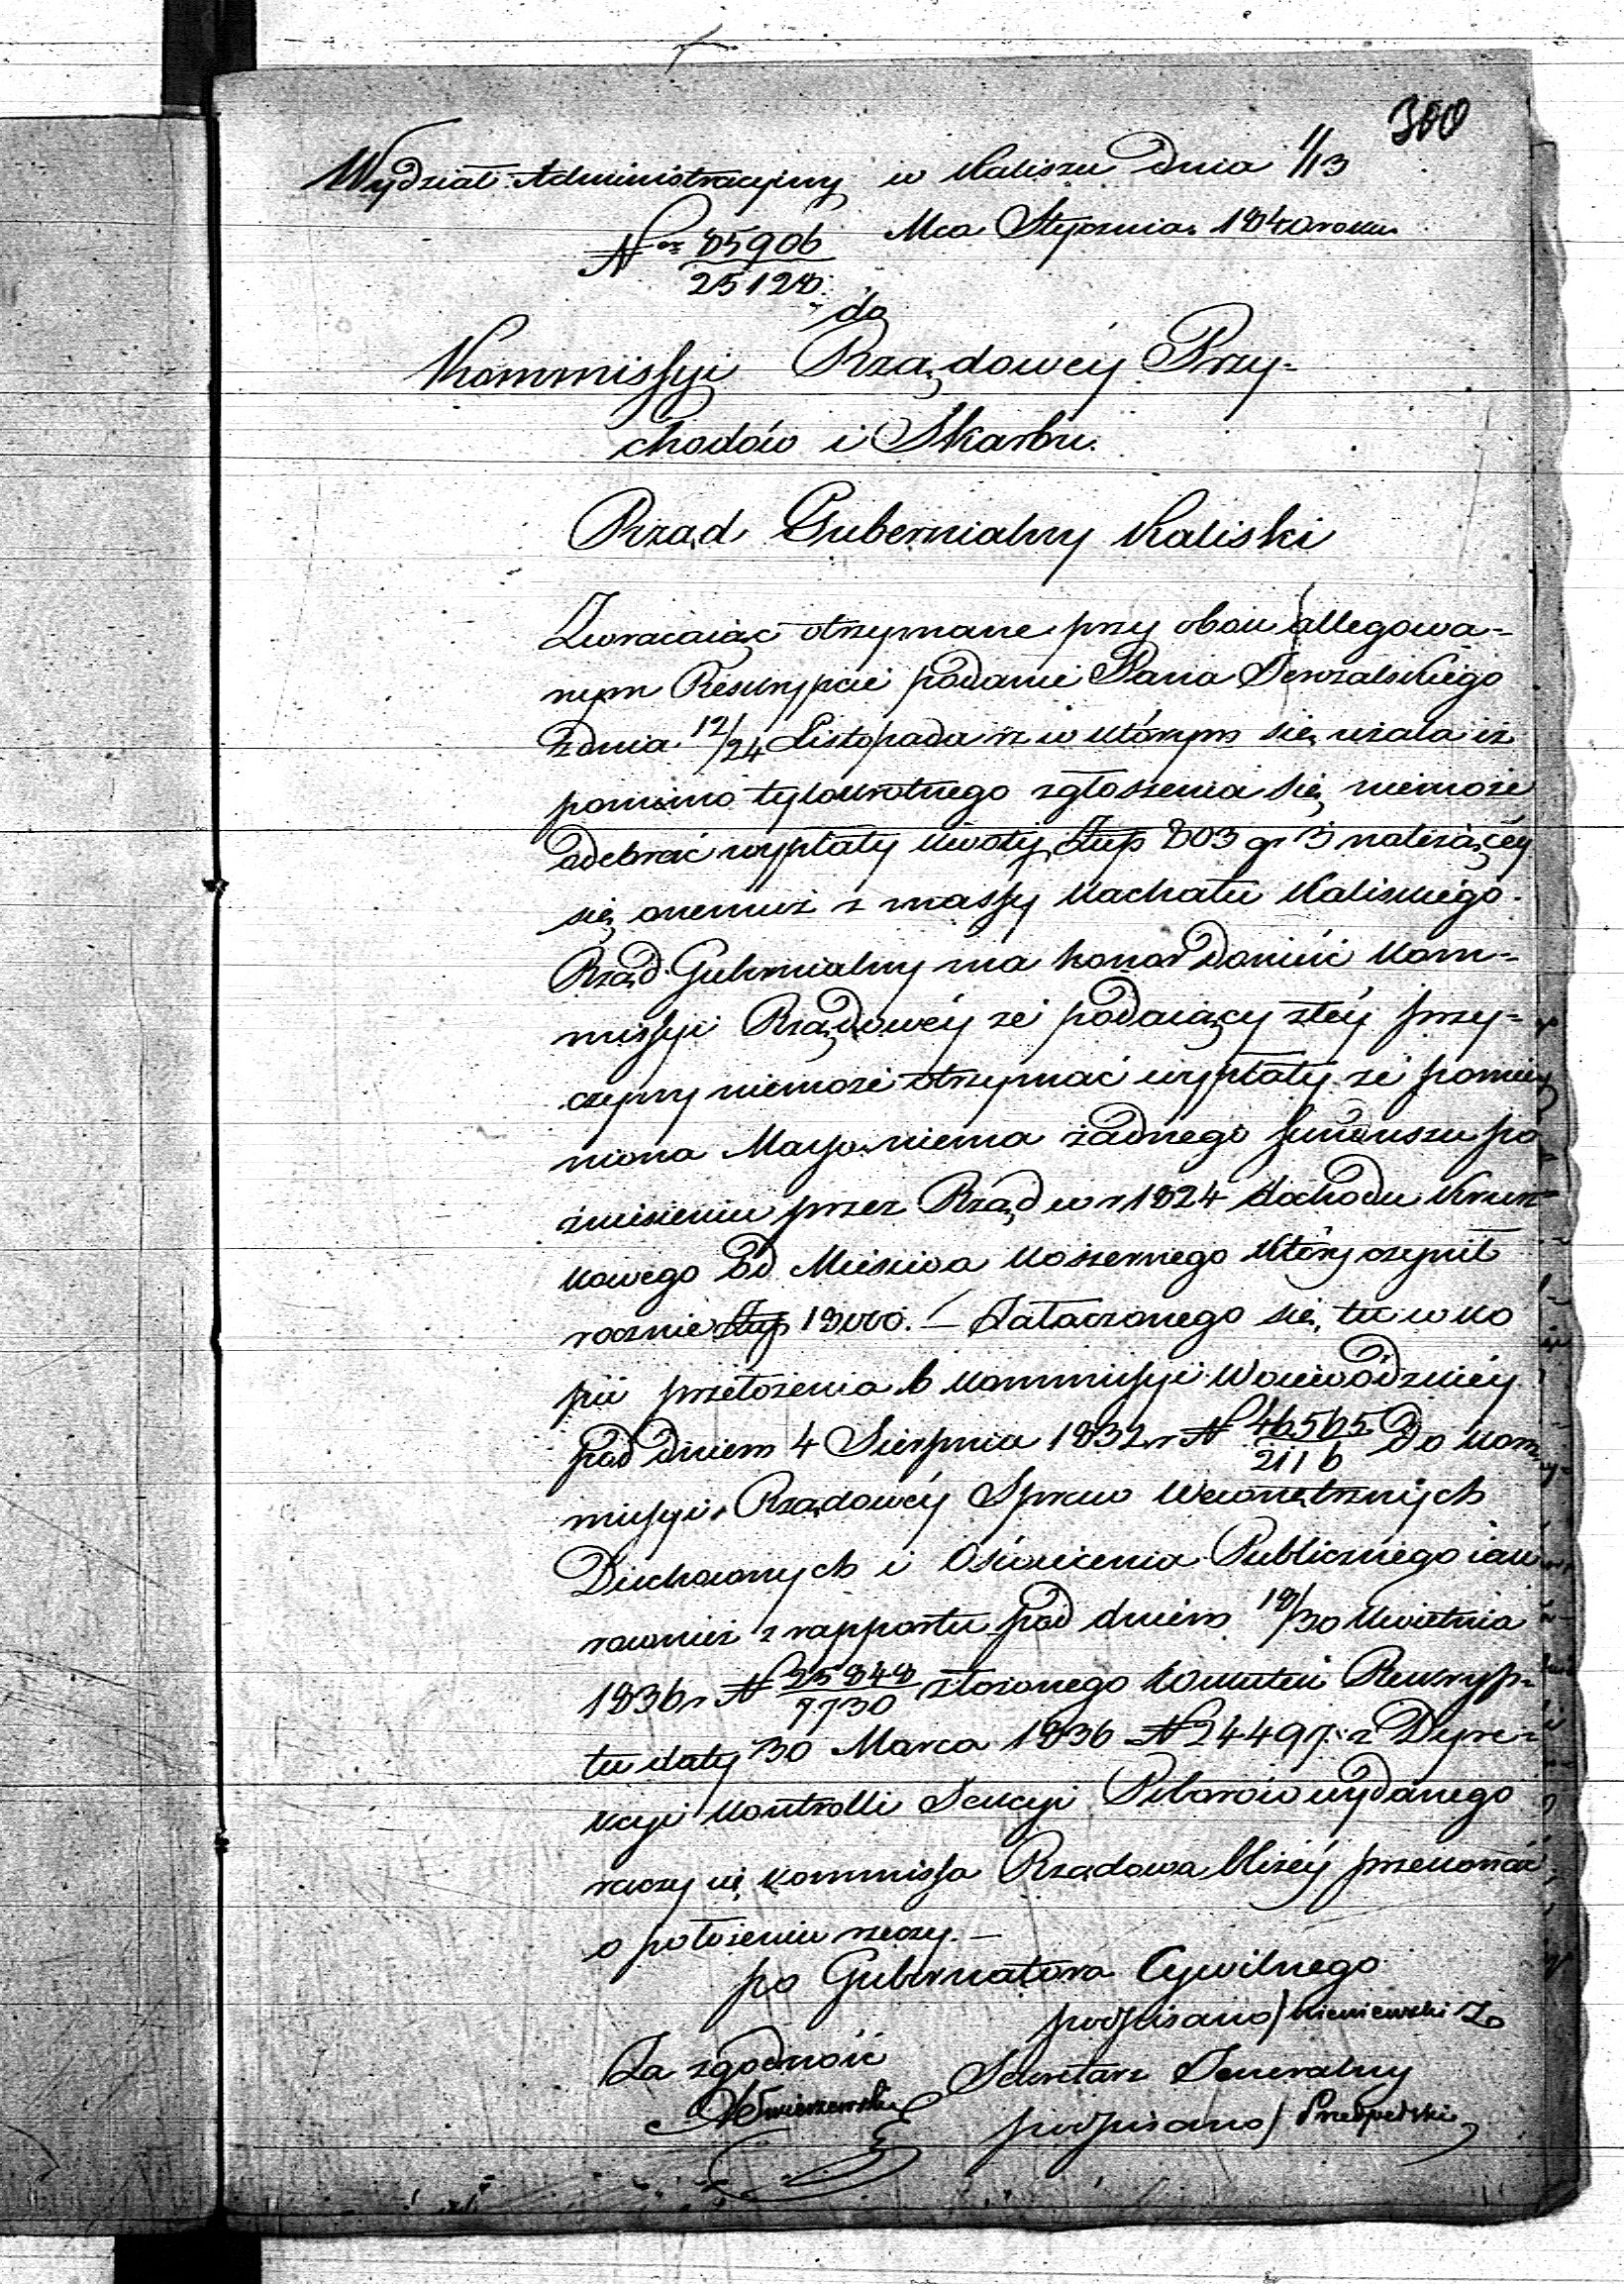 300
Wydział Administracyjny w Kaliszu dnia 1/13
Nor 85906/25128. Mca Stycznia 1840 roku
do
Kommissyi Rządowéy Przy-
chodów i Skarbu.
Rząd Gubernialny Kaliski
Zwracaiąc otrzymane przy obok allegowa-
nym Reskrypcie podanie Pana
z dnia 12/24 Listopada rz w którym się użala iż
pomimo tylokrotnego zgłoszenia się niemoże
odebrać wypłaty kwoty Złtp 803 gr 3 należącéy
się onemuż z massy Kachału Kaliskiego.
Rząd Gubernialny ma honor donieść Kom-
missyi Rządowéy że podaiący z téy przy-
czyny niemoże otrzymać wypłaty że pomie-
niona Massa niema żadnego funduszu po
zniesieniu przez Rząd w r 1824 dochodu Krup-
kowego od Mięsiwa Koszernego który czynił
rocznie Złtp 18000. – Z załączonego się tu w ko
pii przełożenia b Kommissyi Woiewódzkiéy
pod dniem 4 Sierpnia 1832 r N 46565/2116 do Kom-
missyi Rządowéy Spraw Wewnętrznych
Duchownych i Oświecenia Publicznego iako
rownież z rapportu pod dniem 18/30 Kwietnia
1836 r N 25848/7730 złożonego w skutku Reskryp-
tu daty 30 Marca 1836 N 24497. z Dyre-
kcyi Kontrolli Sekcyi Poborów wydanego
raczy się Kommissa Rządowa bliżéy przekonać
o położeniu rzeczy. –
po Gubernatora Cywilnego
podpisano/
Za zgodność Sekretarz Jeneralny
podpisano/ Przedpełski